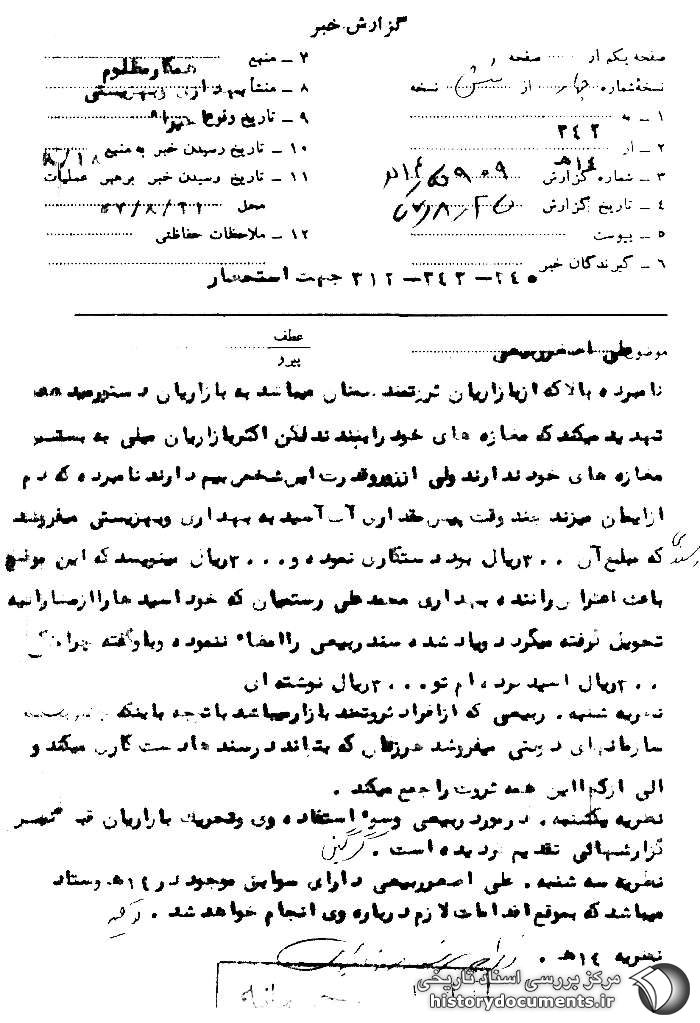 گزارش خبر
صفحه یکم از ..... صفحه
نسخه شماره چهار از شش نسخه
۱ ـ به
۲ ـ از ۳۴۲
۳ ـ شماره گزارش
۴ ـ تاریخ گزارش
۵ ـ پیوست
۶ ـ گیرندگان خبر ۲۴۵ – ۳۴۳ – ۳۱۲ جهت استحضار
۷ ـ منبع همکار مظلوم
۸ ـ منشأ بهداری و بهزیستی
۹ ـ تاریخ وقوع
۱۰ ـ تاریخ رسیدن خبر به منبع ۸/۱۸
۱۱ ـ تاریخ رسیدن خبر برهبر عملیات
محل ۵۷/۸/۲۲
۱۲ ـ ملاحظات حفاظتی
موضوع علی اصغر ربیعی
عطف
پیرو
نامبرده بالا که از بازاریان ثروتمند سمنان میباشد به بازاریان دستور میدهد
تهدید میکند که مغازه های خود را ببندند لکن اکثر بازاریان میلی به بستن
مغازه های خود ندارند ولی از زور و قدرت این شخص بیم دارند نامبرده که دم
از ایمان میزند چند وقت پیش مقداری آب آمید به بهداری وبهزیستی میفروشد
که مبلغ آن ۳۰۰ ریال بود دستکاری نموده و ۳۰۰۰ ریال مینویسد که این موضوع
باعث اعتراض راننده بهداری محمد علی رستمیان که خود اسید هارا از
تحویل گرفته میگردد ویاد شده سند ربیعی را امضاء ننموده وباو گفته چرا
۳۰۰ ریال اسید برده ام تو ۳۰۰۰ ریال نوشته ای
نظریه شنبه . ربیعی که از افراد ثروتمند بازار میباشد با توجه باینکه
سازمانهای دولتی میفروشد هر زمان که بتواند در سند ها دست کاری میکند و
الی از کجا این همه ثروت را جمع میکند .
نظریه یکشنبه . در مورد ربیعی وسوء استفاده وی وتحریک بازاریان قبلا نیز
گزارشهائی تقدیم گردیده است .
نظریه سه شنبه . علی اصغر ربیعی دارای سوابق موجود در ۱۴ه وستاد
میباشد که بموقع اقدامات لازم درباره وی انجام خواهد شد .
نظریه ۱۴ه .
مرکز بررسی اسناد تاریخی
historydocuments.ir